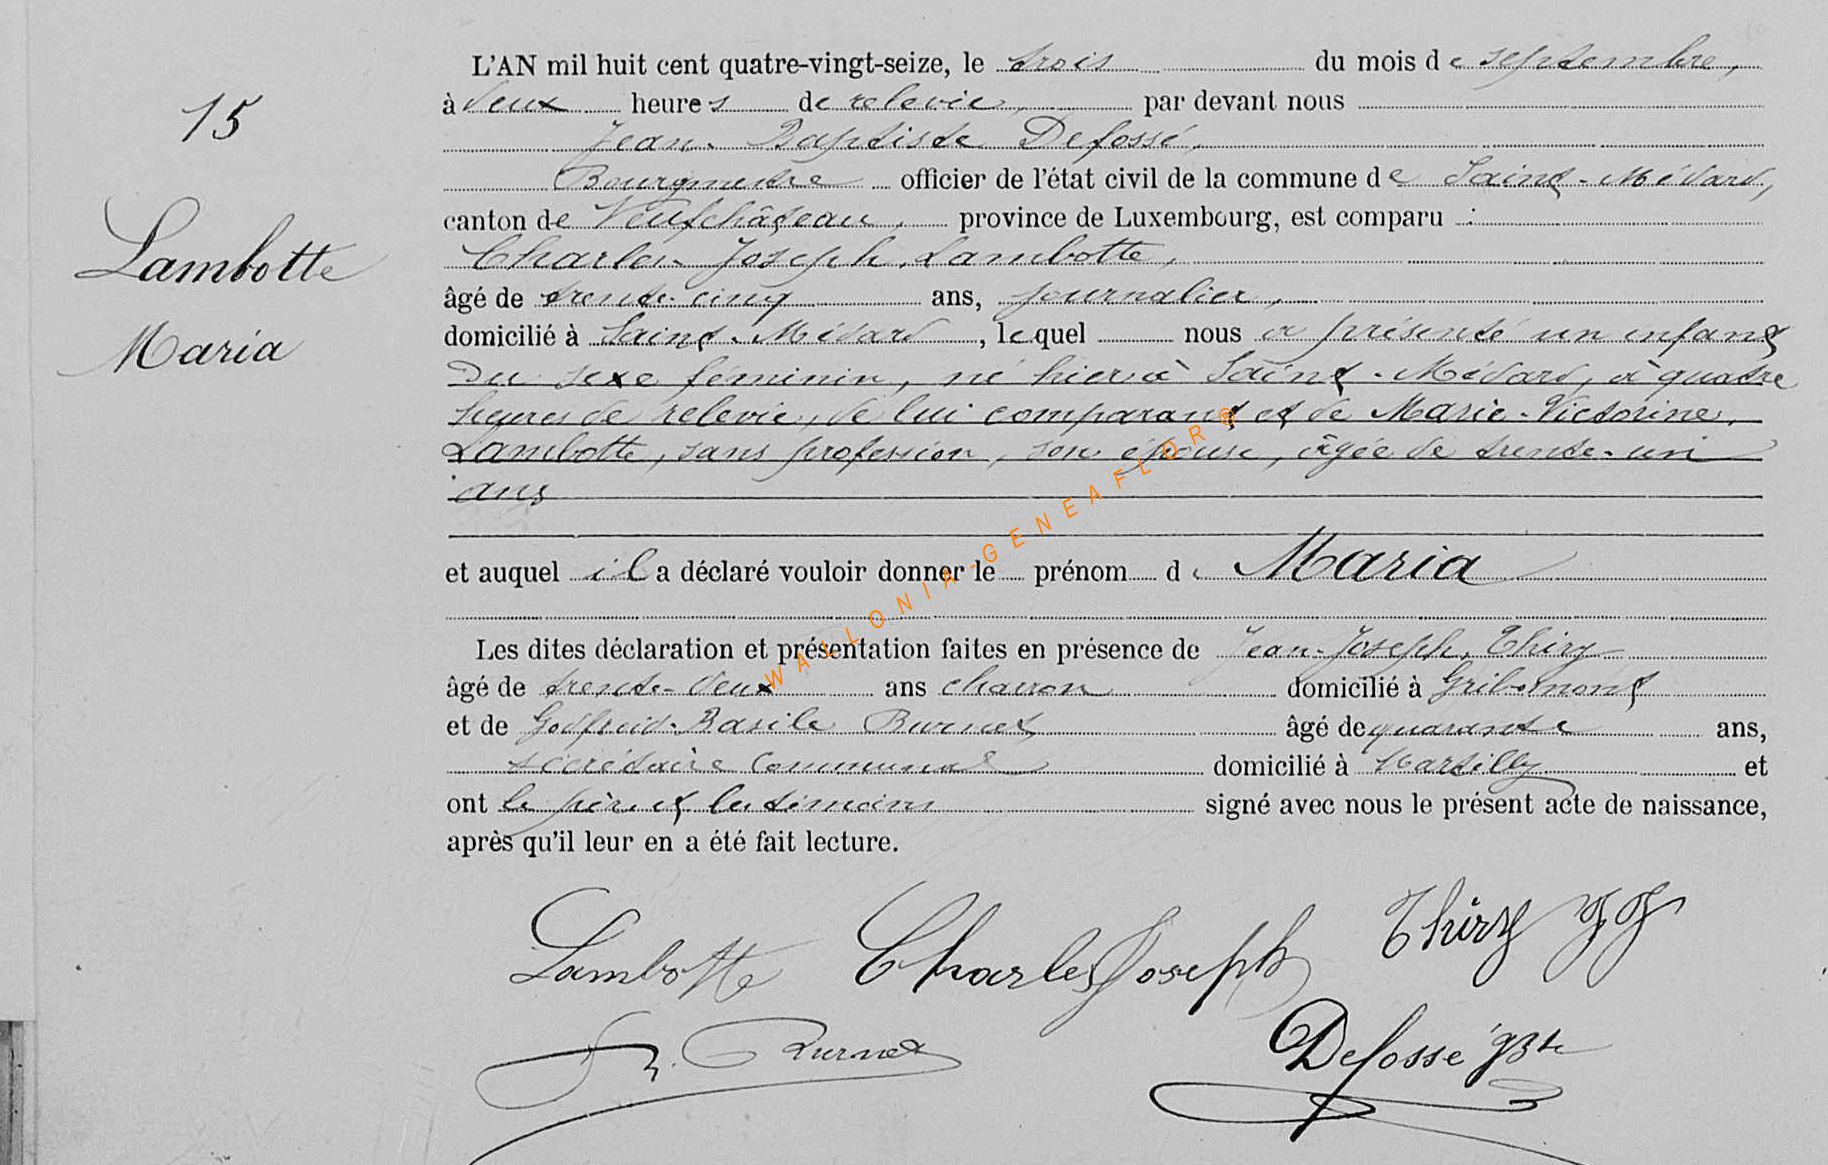 15
Lambotte
Maria
L'AN mil huit cent quatre-vingt-seize, le trois du mois de septembre,
à deux heures de relevée, par devant nous
Jean-Baptiste Defossé,
Bourgmestre officier de l'état civil de la commune de Saint-Médard,
canton de Neufchâteau, province de Luxembourg, est comparu :
Charles-Joseph Lambotte,
âgé de trente-cinq ans, journalier,
domicilié à Saint-Médard, lequel nous a présenté un enfant
du sexe féminin, né hier à Saint-Médard, à quatre
heures de relevée, de lui comparant et de Marie-Victorine
Lambotte, sans profession, son épouse, âgée de trente-un
ans
et auquel il a déclaré vouloir donner le prénom de Maria
Les dites déclaration et présentation faites en présence de Jean-Joseph Thiry
âgé de trente-deux ans charron domicilié à Gribomont
et de Godfroid-Basile Burnet âgé de quarante ans,
secrétaire communal domicilié à Martilly et
ont le père et les témoins signé avec nous le présent acte de naissance,
après qu'il leur en a été fait lecture.
Lambotte Charles Joseph Thiry JJ
Burnet
Defossé JBte
WALLONIA-GENEAFLOR®